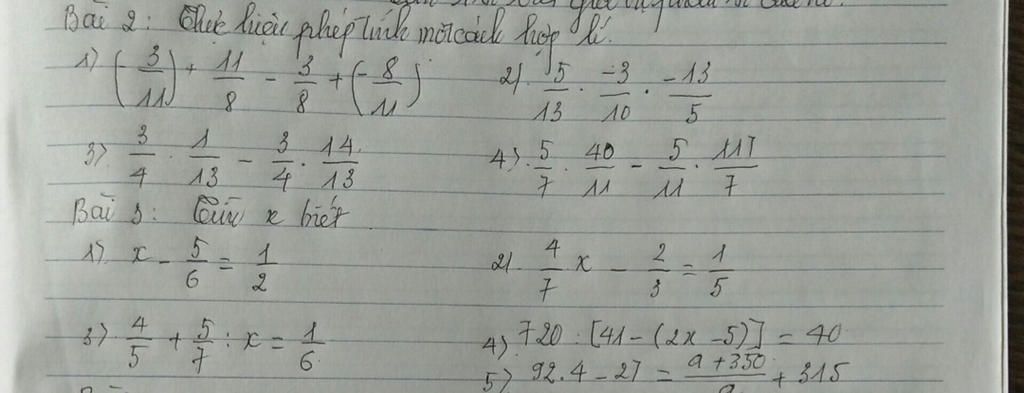 Bài 2: Thực hiện phép tính một cách hợp lí.
1) (-3/11) + 11/8 - 3/8 + (-8/11)
2) 5/13 . -3/10 . -13/5
3) 3/4 . 1/13 - 3/4 . 14/13
4) 5/7 . 40/11 - 5/11 . 117/7
Bài 3: Tìm x biết
1) x - 5/6 = 1/2
2) 4/7 x - 2/3 = 1/5
3) 4/5 + 5/7 : x = 1/6
4) 720 : [41 - (2x - 5)] = 40
5) 92.4 - 27 = (a + 350)/a + 315